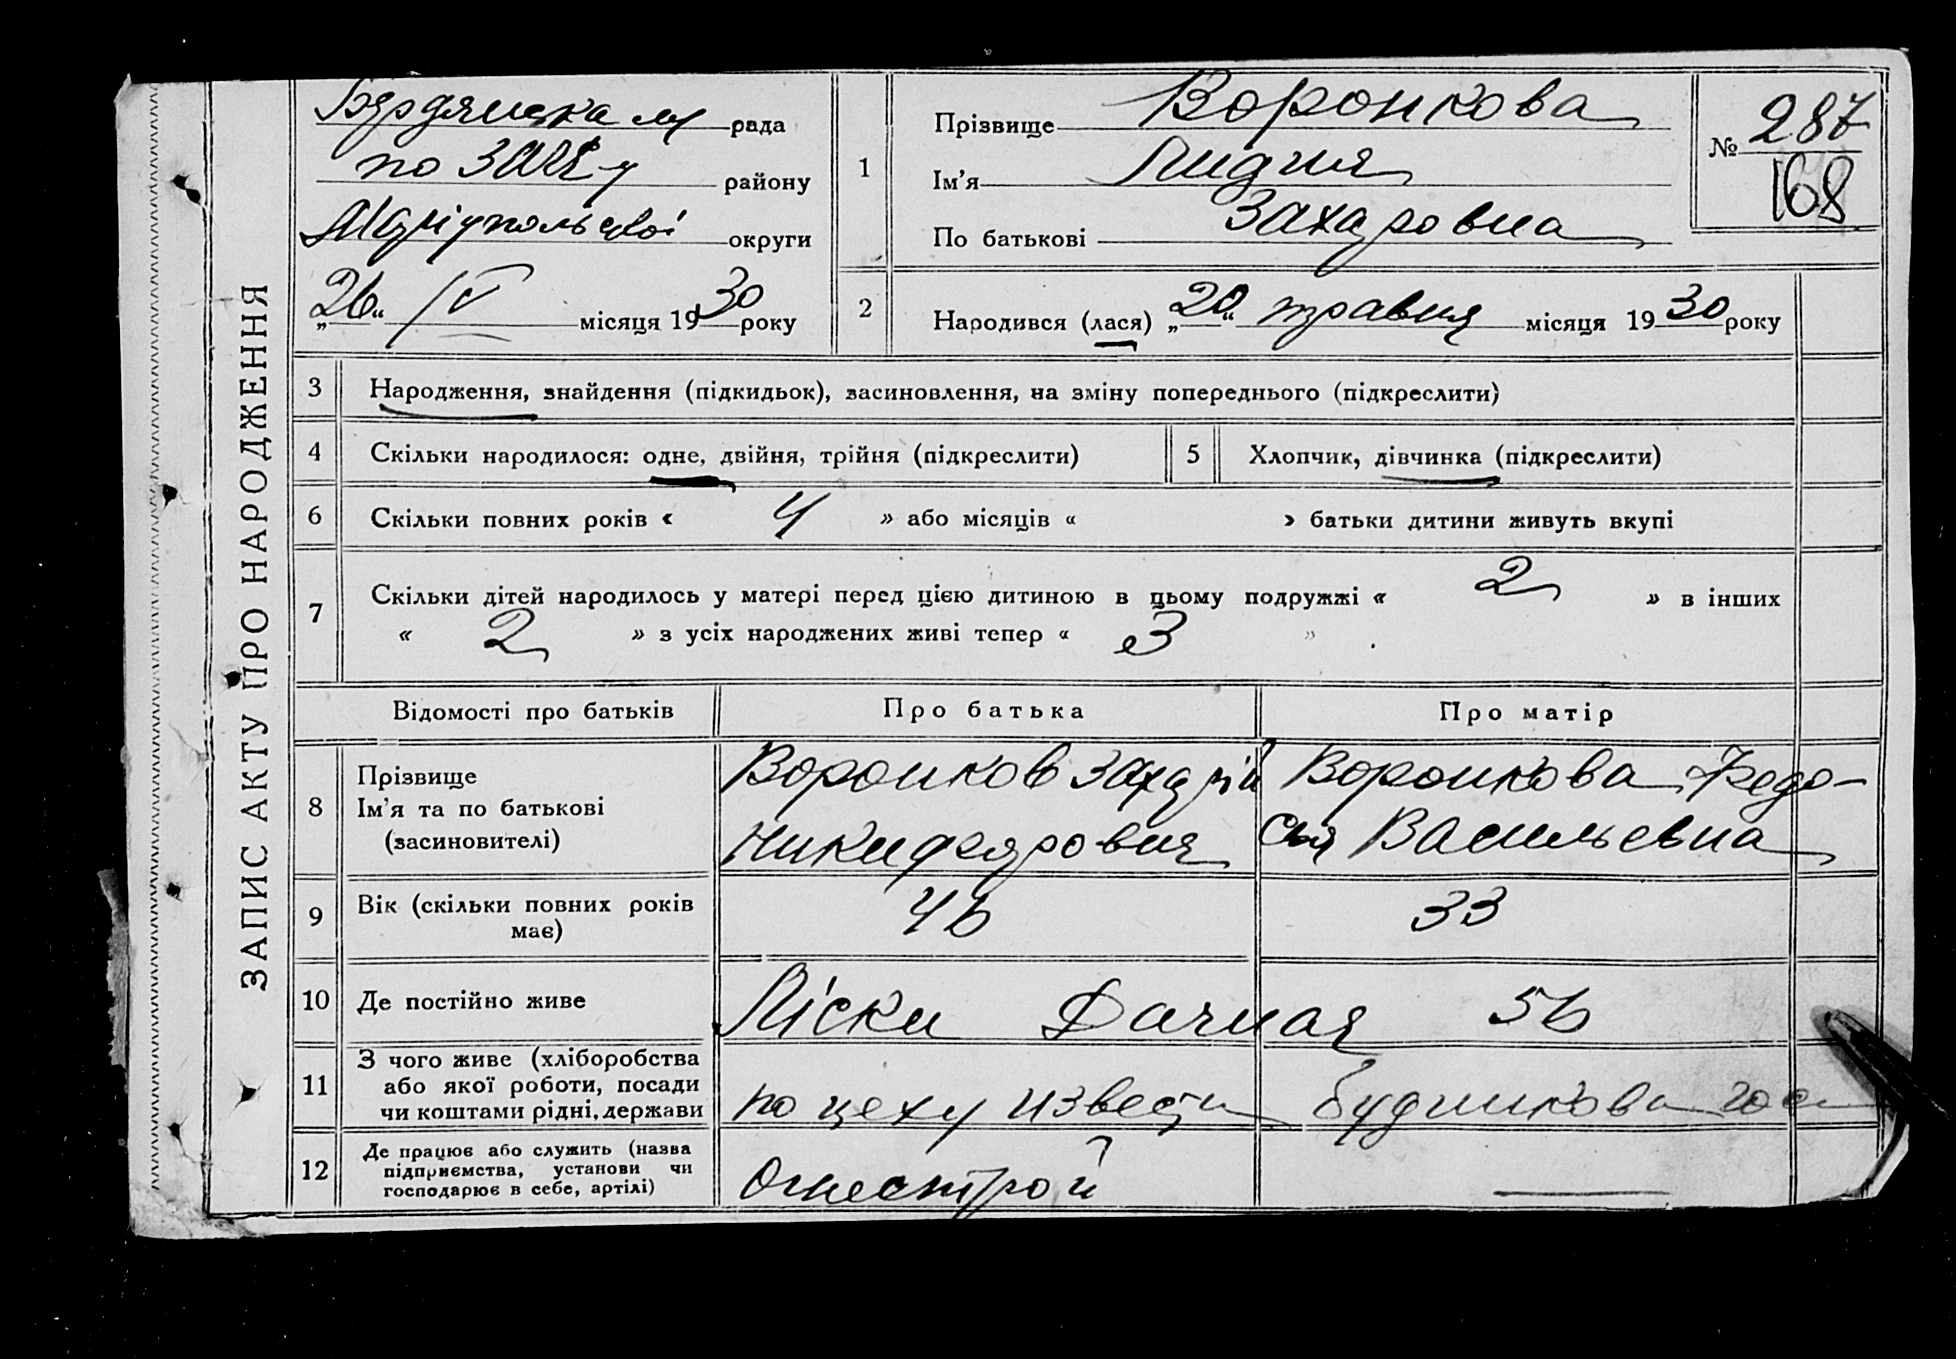 ЗАПИС АКТУ ПРО НАРОДЖЕННЯ
Бердянська м рада
по ЗАГСу району
Маріупольської округи
„26“ IV місяця 1930 року
1
Прізвище Воронкова
Ім'я Лидия
По батькові Захаровна
№ 287
168
2
Народився (лася) „20“ травня місяця 1930 року
3 Народження, знайдення (підкидьок), засиновлення, на зміну попереднього (підкреслити)
4 Скільки народилося: одне, двійня, трійня (підкреслити) 5 Хлопчик, дівчинка (підкреслити)
6 Скільки повних років « 4 » або місяців « » батьки дитини живуть вкупі
7 Скільки дітей народилось у матері перед цією дитиною в цьому подружжі « 2 » в інших
« 2 » з усіх народжених живі тепер « 3 »
Відомості про батьків Про батька Про матір
8 Прізвище
Ім'я та по батькові
(засиновителі)
Воронков Захарій
Никифоров
Воронкова Федо-
сья Васильевна
9 Вік (скільки повних років
має)
46 33
10 Де постійно живе Ліски Дачная 56
11 З чого живе (хліборобства
або якої роботи, посади
чи коштами рідні, держави
по цеху извести
12 Де працює або служить (назва
підприємства, установи чи
господарює в себе, артілі)
Огнестрой